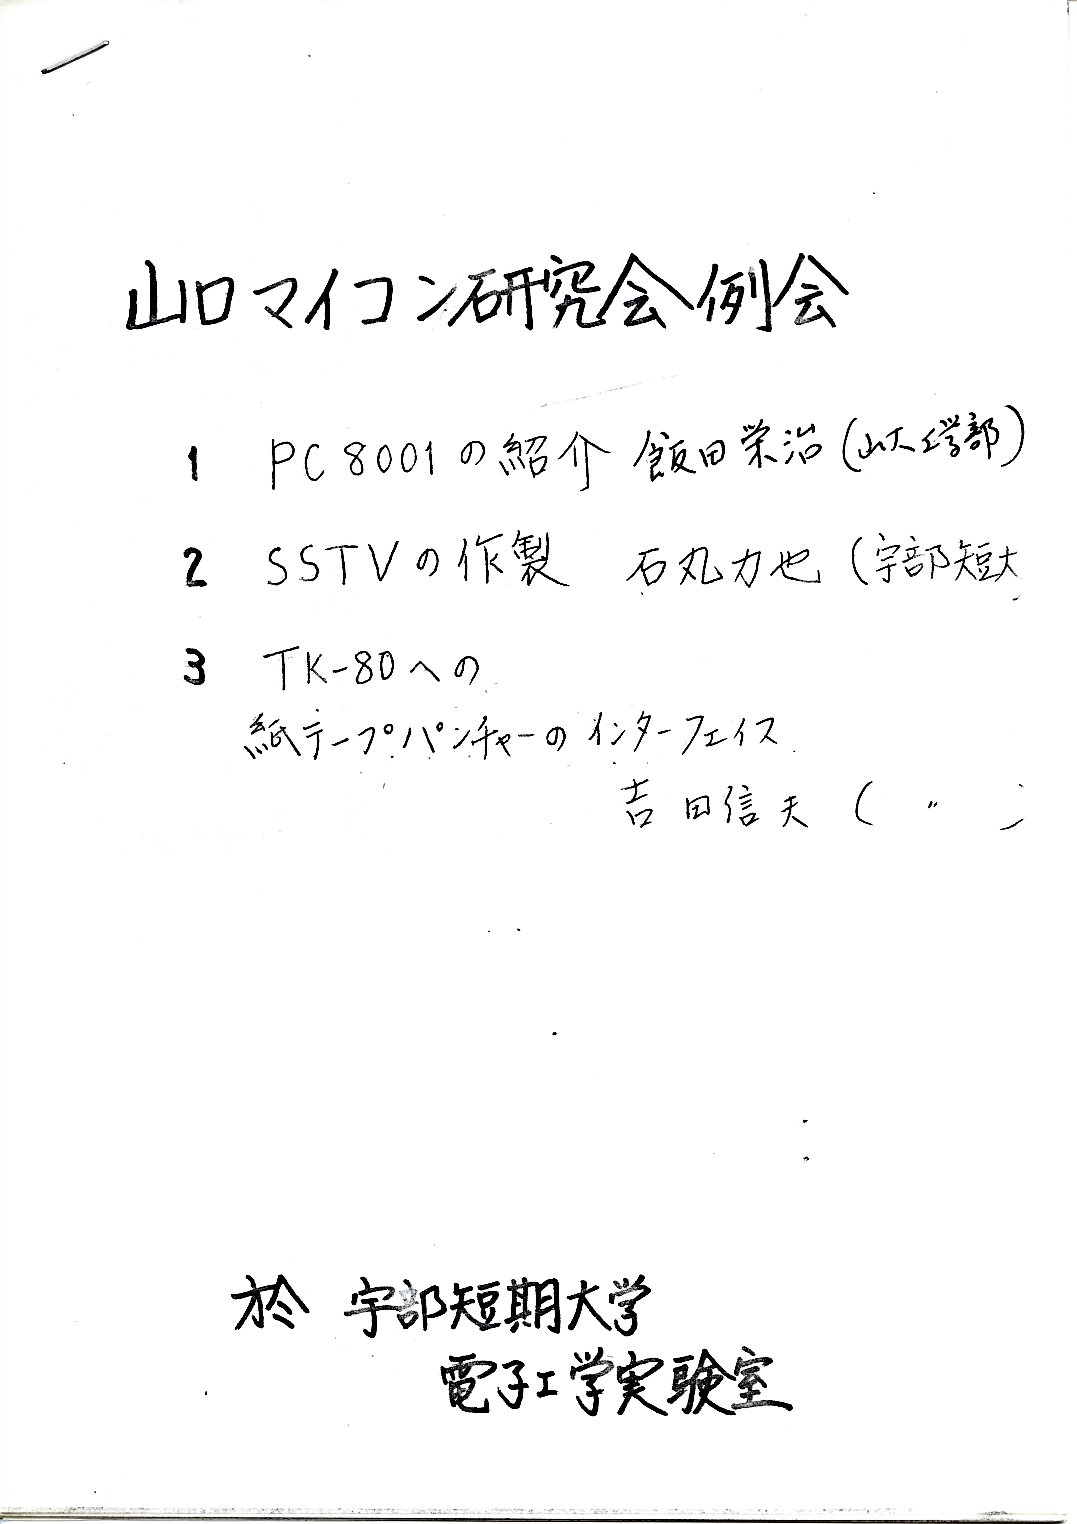 山口マイコン研究会例会
1 PC8001の紹介 飯田栄治(山大工学部)
2 SSTVの作製 石丸力也(宇部短大
3 TK-80への
紙テープパンチャーのインターフェイス
吉田信夫( 〃 )
於 宇部短期大学
電子工学実験室